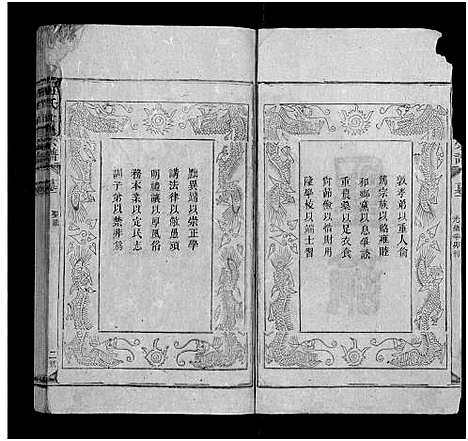 敦孝弟以重人倫
篤宗族以昭雍睦
和鄉黨以息爭訟
重農桑以足衣食
尚節儉以惜財用
隆學校以端士習
黜異端以崇正學
講法律以儆愚頑
明禮讓以厚風俗
務本業以定民志
訓子弟以禁非為